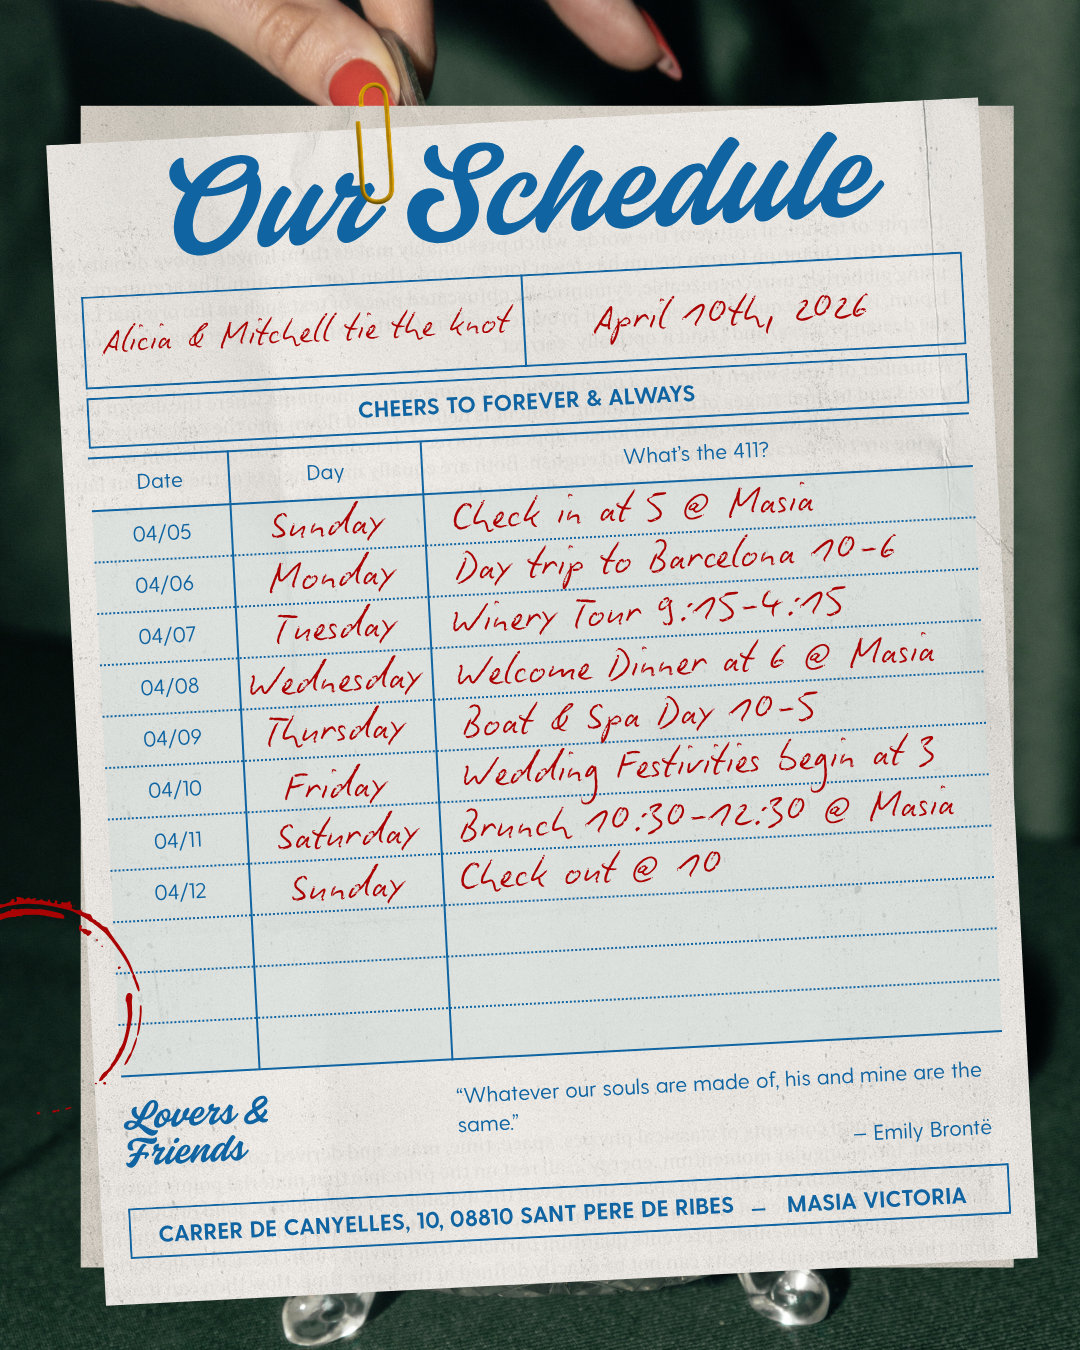 Our Schedule
Alicia & Mitchell tie the knot
April 10th, 2026
CHEERS TO FOREVER & ALWAYS
Date Day What's the 411?
04/05 Sunday Check in at 5 @ Masia
04/06 Monday Day trip to Barcelona 10-6
04/07 Tuesday Winery Tour 9:15-4:15
04/08 Wednesday Welcome Dinner at 6 @ Masia
04/09 Thursday Boat & Spa Day 10-5
04/10 Friday Wedding Festivities begin at 3
04/11 Saturday Brunch 10:30-12:30 @ Masia
04/12 Sunday Check out @ 10
Lovers &
Friends
“Whatever our souls are made of, his and mine are the
same.”
– Emily Brontë
CARRER DE CANYELLES, 10, 08810 SANT PERE DE RIBES – MASIA VICTORIA